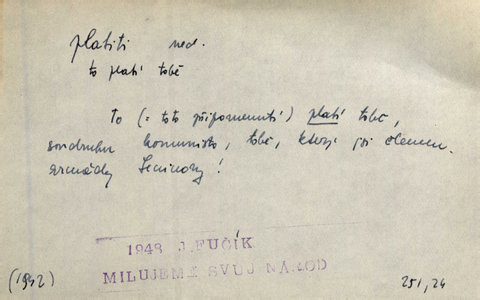 platiti ned.
to platí tobě
To (= toto připomenutí) platí tobě,
soudruhu komunisto, tobě, který jsi členem
armády Leninovy!
1948 J.FUČÍK
MILUJEME SVŮJ NÁROD
(1942) 251,24